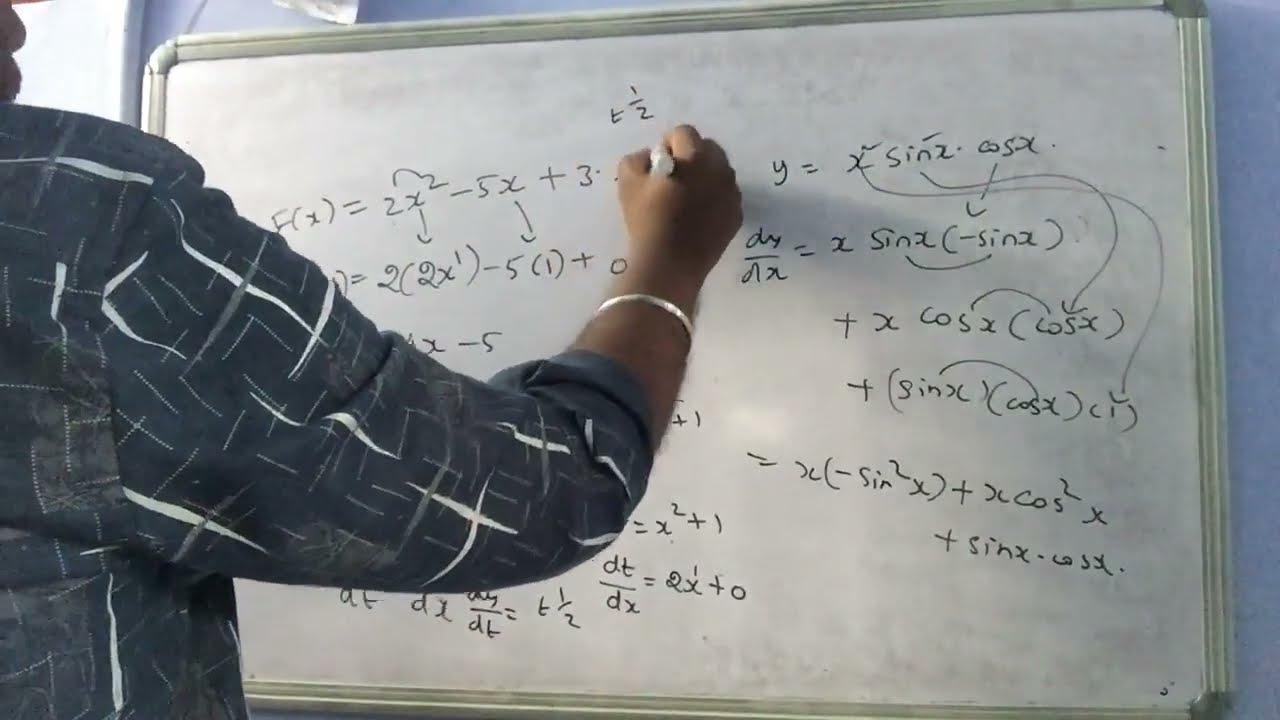 t^{1/2}
F(x) = 2x² - 5x + 3.
) = 2(2x¹) - 5(1) + 0
4x - 5
+1
= x² + 1
dt/dx = 2x¹ + 0
dt dx dy/dt = t^{1/2}
y = x sinx. cosx.
dy/dx = x sinx(-sinx)
+ x cosx(cosx)
+ (sinx)(cosx)(1)
= x(-sin²x) + x cos²x
+ sinx.cosx.